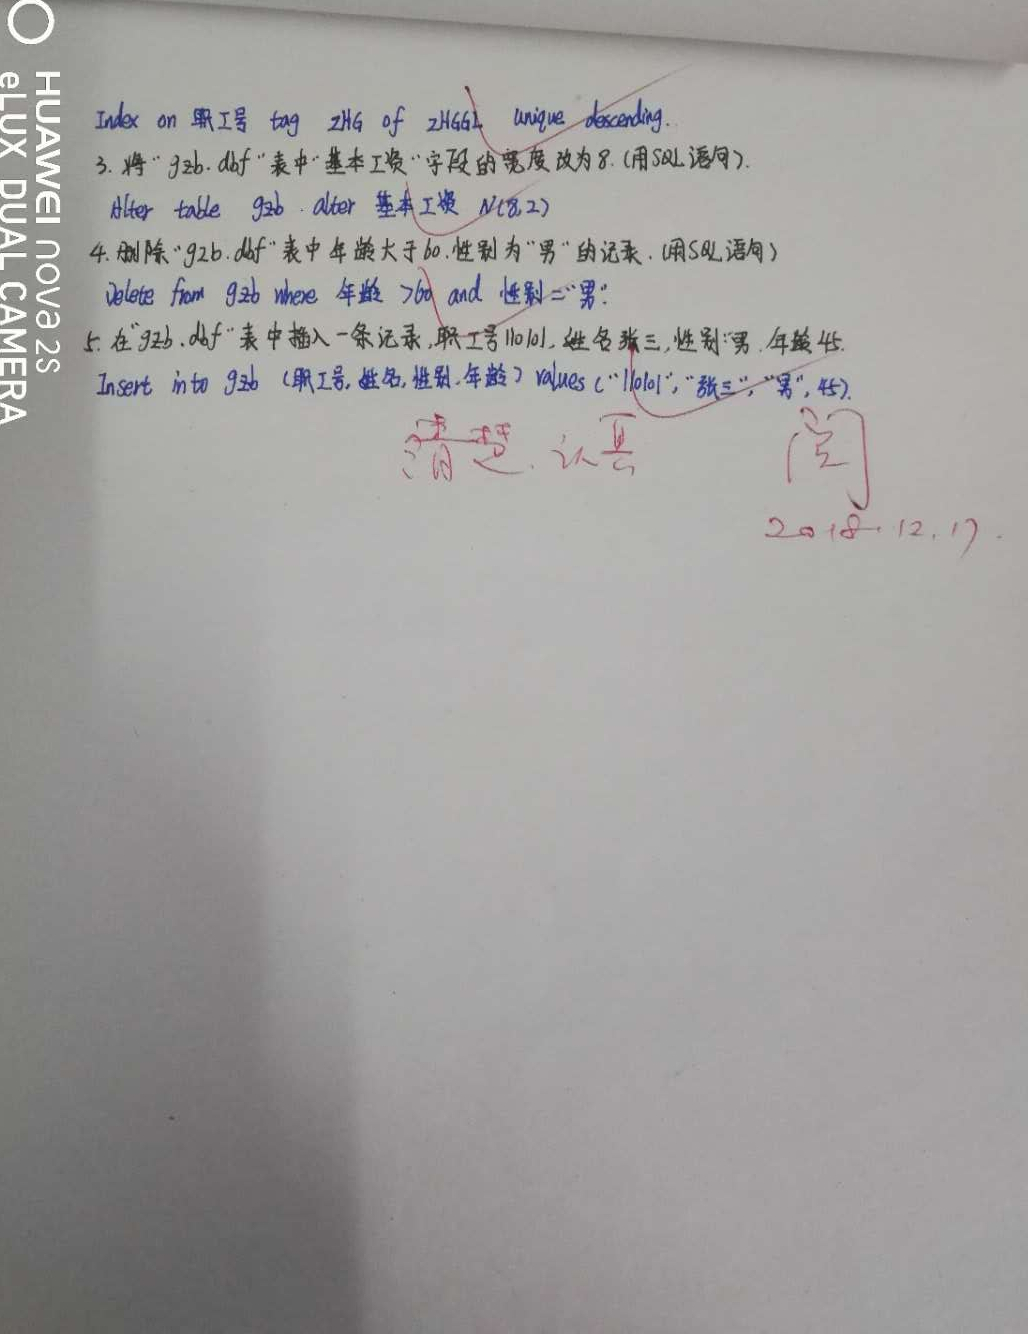 Index on 职工号 tag ZHG of ZHGGL unique descending.
3. 将“gzb.dbf”表中“基本工资”字段的宽度改为8.(用SQL语句).
Alter table gzb alter 基本工资 N(8,2)
4. 删除“gzb.dbf”表中年龄大于60.性别为“男”的记录.(用SQL语句)
Delete from gzb where 年龄 >60 and 性别="男".
5. 在“gzb.dbf”表中插入一条记录,职工号110101,姓名张三,性别:男.年龄45.
Insert into gzb (职工号,姓名,性别,年龄) values ("110101","张三","男",45).
清楚.认真 阅
2018.12.17.
HUAWEI nova 2s
eLUX DUAL CAMERA